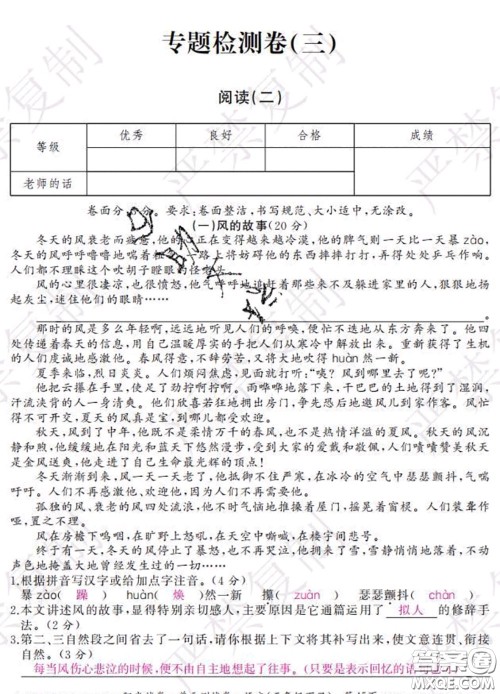 专题检测卷(三)
阅读(二)
等级 优秀 良好 合格 成绩
老师的话
卷面分 分。要求:卷面整洁,书写规范、大小适中,无涂改。
(一)风的故事(20分)
冬天的风衰老而疲惫,他的 正在变得越来越冷漠,他的脾气则一天比一天暴 zào,
冬天的风呼呼噜噜地喘着 一路上将妨碍他的东西摔摔打打,弄得处处乒乓作响。
人们都不理睬这个吹胡子瞪眼的怪 头。
风的心里很凄凉,也很愤怒,他气呼呼地追赶着那些来不及躲进家里的人,狠狠地扬
起灰尘,迷住他们的眼睛……
那时的风是多么年轻啊,远远地听见人们的呼唤,便忙不迭地从东方奔来了。他四
处传递着春天的信息,用自己温暖厚实的手把人们从寒冷中解放出来。重新获得了生机
的人们虔诚地感激他。春风得意,不辞劳苦,又将大地吹得 huàn 然一新。
夏季来临,烈日炎炎。人们烦闷焦虑,见面就打听:“咦?风到哪里去了呢?”
他把云攥在手里,使足了劲拧啊拧啊。雨哗哗地落下来,干巴巴的土地得到了湿润,
汗流浃背的人一身清爽。他们欣喜若狂地拥出房门,争先恐后地邀风儿到家作客。风忙
得不可开交,夏天的风真是宝,到哪儿都受欢迎。
秋天,风到了中年,他既不是柔情万千的春风,也不是热情洋溢的夏风。秋天的风沉
静和煦,他缓缓地在阳光和蓝天下悠然漫步,受到大家的爱戴和敬佩,人们啧啧赞美秋天
是金风送爽,他走过了自己生命最光辉的顶点!
冬天渐渐到来,风一天一天老了,他抵御不住严寒,在冰冷的空气中瑟瑟颤抖,气喘
吁吁。人们不再感激他、欢迎他。人们不再需要他了。
孤独的风、衰老的风四处流浪,他不时气恼地推搡着屋门,摇晃着窗棂。人们装聋作
哑,置之不理。
风在房檐下呜咽,在旷野上怒吼,在天空中嘶喊,在楼宇间悲号。
终于有一天,冬天的风停止了暴怒,他不再吹了。于是,雪来了,雪静悄悄地落着,不动
声色地掩盖大地曾经发生过的一切……
1.根据拼音写汉字或给加点字注音。(4分)
暴 zào( 躁 ) huàn( 焕 )然一新 攥( zuàn ) 瑟瑟颤抖( chàn )
2.本文讲述风的故事,显得特别亲切感人,主要原因是它通篇运用了 拟人 的修辞手
法。(2分)
3.第二、三自然段之间省去了一句话,请你根据上下文将其补写出来,使文意连贯,衔接
自然。(3分)
每当风伤心悲泣的时候,便不由自主地想起了往事。(只要是表示回忆的话
MXQE.COM